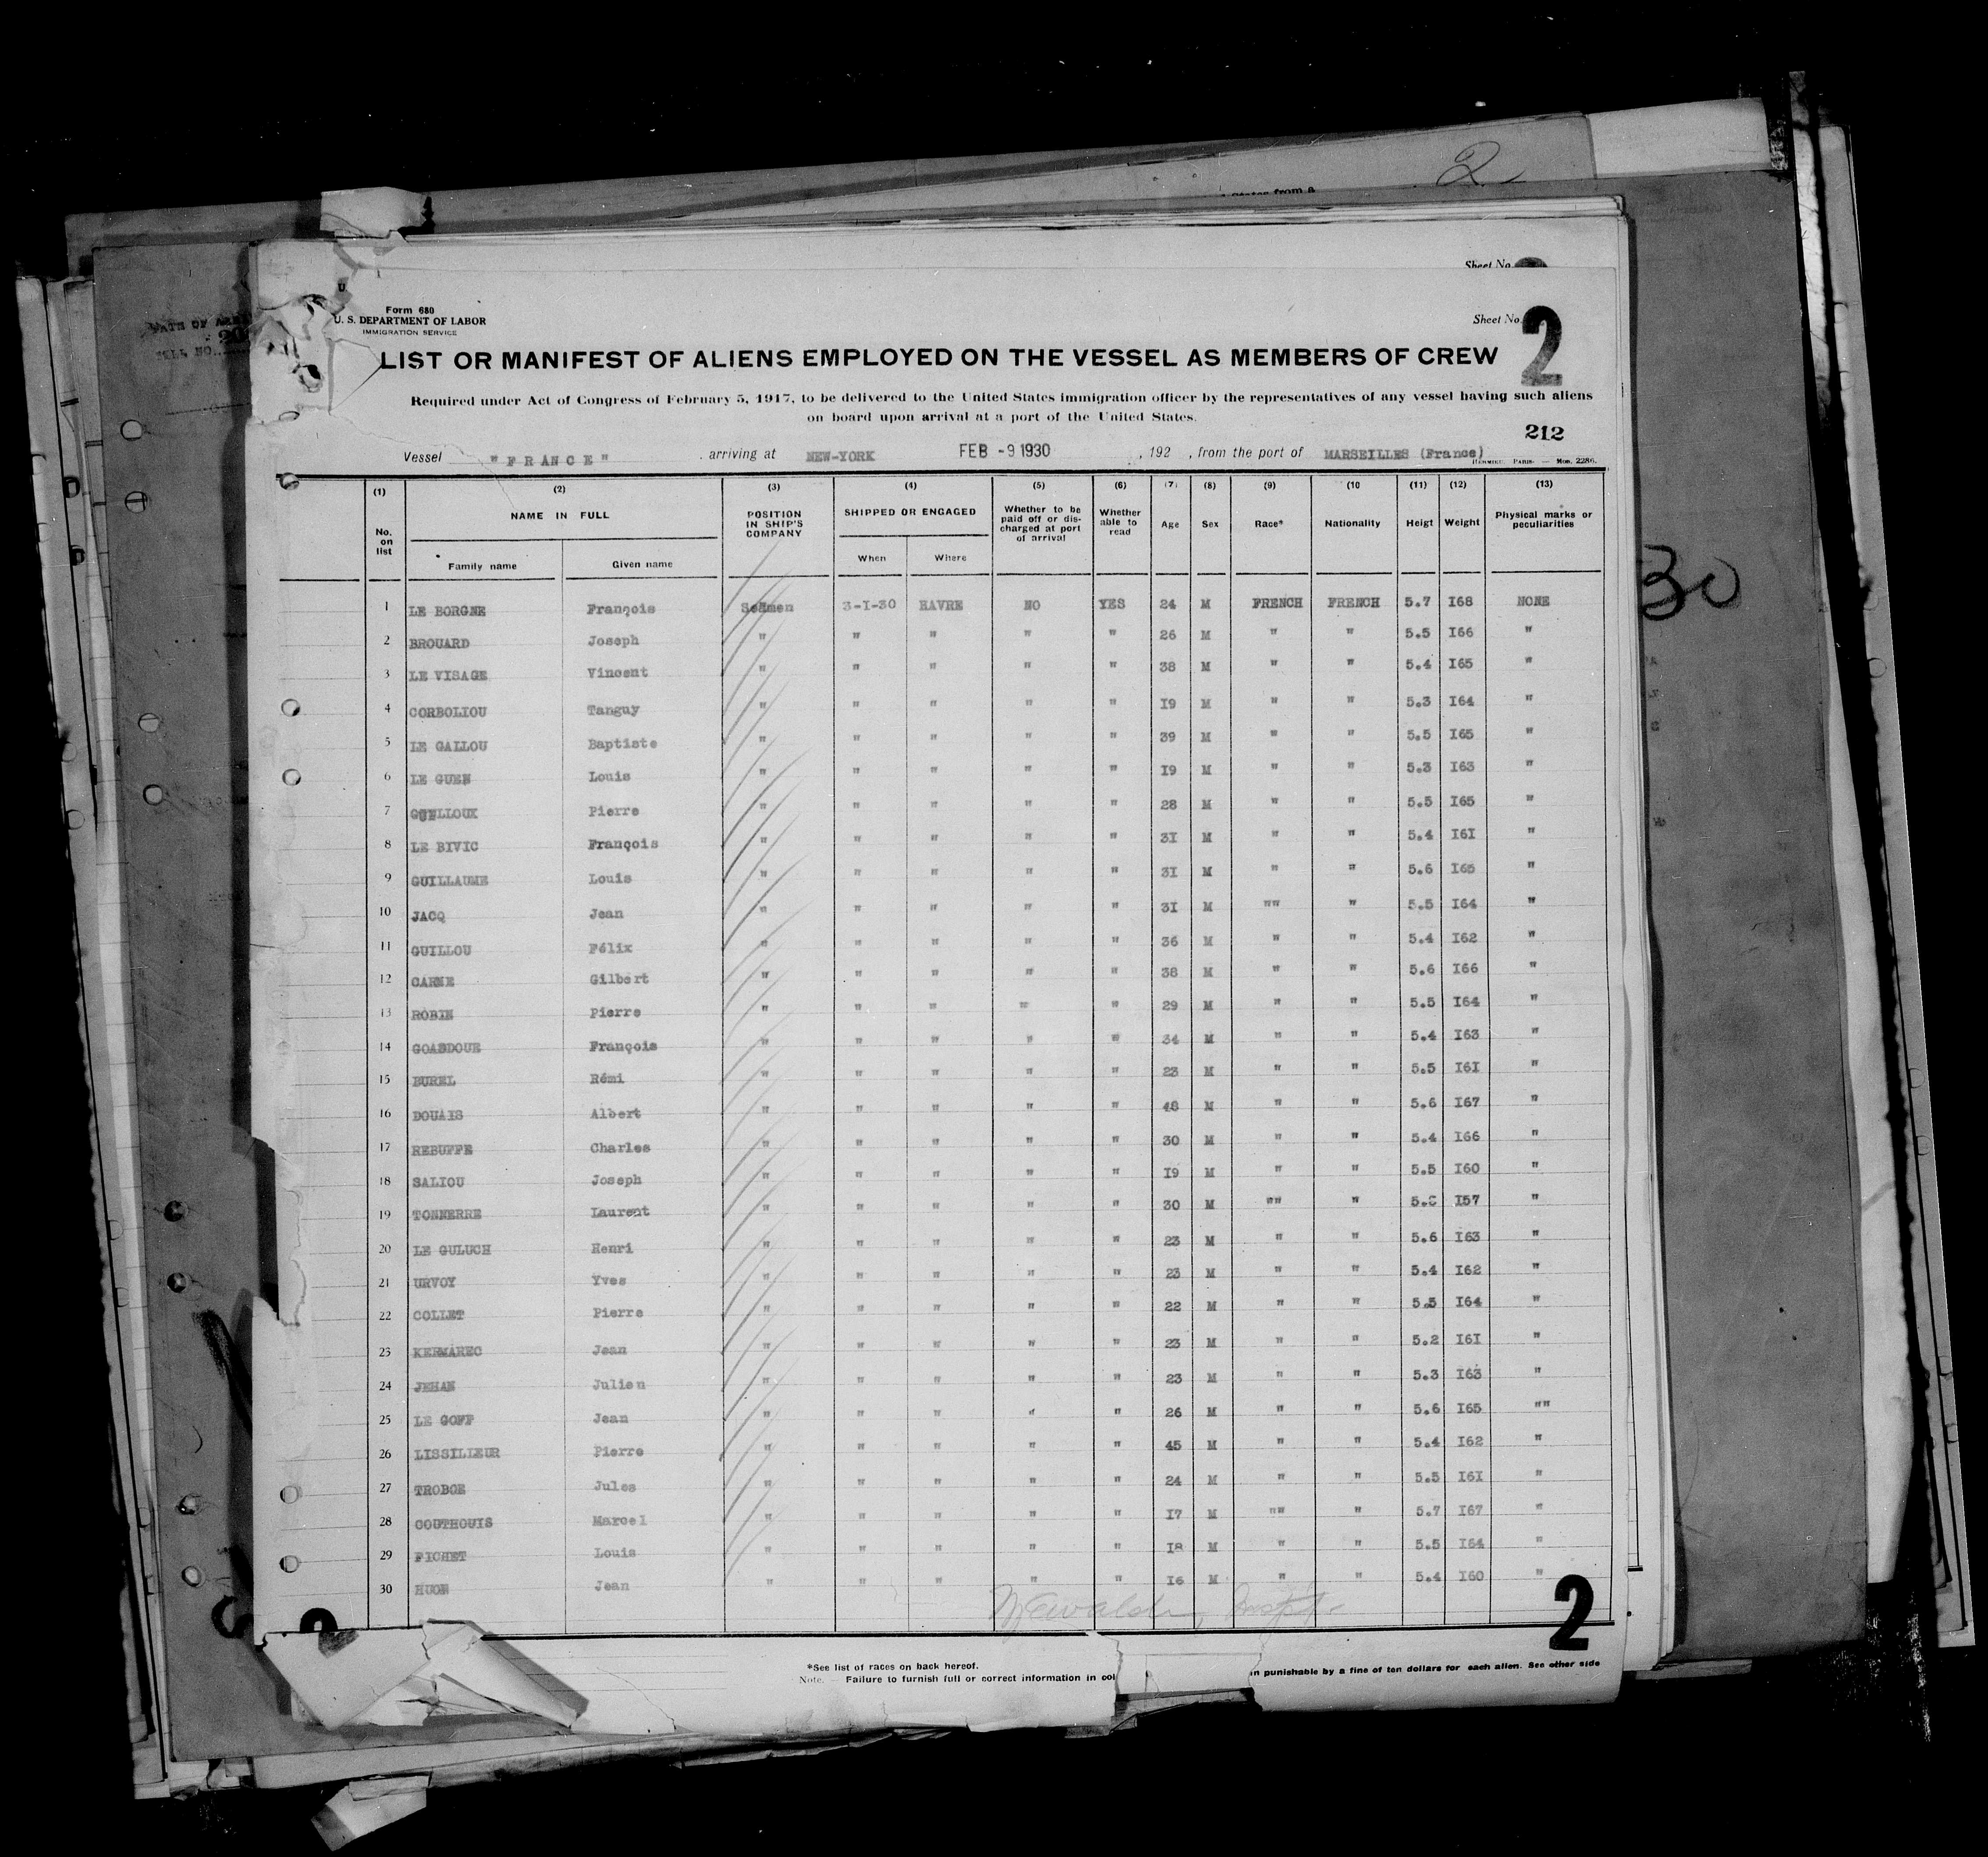 2
States from a
Sheet No.
Form 680
U. S. DEPARTMENT OF LABOR
IMMIGRATION SERVICE
Sheet No. 2
LIST OR MANIFEST OF ALIENS EMPLOYED ON THE VESSEL AS MEMBERS OF CREW
Required under Act of Congress of February 5, 1917, to be delivered to the United States immigration officer by the representatives of any vessel having such aliens
on board upon arrival at a port of the United States.
212
Vessel "FRANCE" , arriving at NEW-YORK FEB -9 1930 , 192 , from the port of MARSEILLES (France)
PARIS — Mod. 2286.
(1) (2) (3) (4) (5) (6) (7) (8) (9) (10 (11) (12) (13)
No. on list NAME IN FULL POSITION IN SHIP'S COMPANY SHIPPED OR ENGAGED Whether to be paid off or discharged at port of arrival Whether able to read Age Sex Race* Nationality Heigt Weight Physical marks or peculiarities
Family name Given name When Where
1 LE BORGNE François Seamen 3-I-30 HAVRE NO YES 24 M FRENCH FRENCH 5.7 I68 NONE
2 BROUARD Joseph " " " " " 26 M " " 5.5 I66 "
3 LE VISAGE Vincent " " " " " 38 M " " 5.4 I65 "
4 CORBOLIOU Tanguy " " " " " I9 M " " 5.3 I64 "
5 LE GALLOU Baptiste " " " " " 39 M " " 5.5 I65 "
6 LE GUEN Louis " " " " " I9 M " " 5.3 I63 "
7 GUELLOUX Pierre " " " " " 28 M " " 5.5 I65 "
8 LE BIVIC François " " " " " 3I M " " 5.4 I6I "
9 GUILLAUME Louis " " " " " 3I M " " 5.6 I65 "
10 JACQ Jean " " " " " 3I M "" " 5.5 I64 "
11 GUILLOU Félix " " " " " 36 M " " 5.4 I62 "
12 CARNE Gilbert " " " " " 38 M " " 5.6 I66 "
13 ROBIN Pierre " " " " " 29 M " " 5.5 I64 "
14 GOASDOUE François " " " " " 34 M " " 5.4 I63 "
15 BUREL Rémi " " " " " 23 M " " 5.5 I6I "
16 DOUAIS Albert " " " " " 48 M " " 5.6 I67 "
17 REBUFFE Charles " " " " " 30 M " " 5.4 I66 "
18 SALIOU Joseph " " " " " I9 M " " 5.5 I60 "
19 TONNERRE Laurent " " " " " 30 M "" " I57 "
20 LE GULUCH Henri " " " " " 23 M " " 5.6 I63 "
21 URVOY Yves " " " " " 23 M " " 5.4 I62 "
22 COLLET Pierre " " " " " 22 M " " 5.5 I64 "
23 KERMAREC Jean " " " " " 23 M " " 5.2 I6I "
24 JEHAN Julien " " " " " 23 M " " 5.3 I63 "
25 LE GOFF Jean " " " " " 26 M " " 5.6 I65 ""
26 LISSILLEUR Pierre " " " " " 45 M " " 5.4 I62 "
27 TROBOE Jules " " " " " 24 M " " 5.5 I6I "
28 COUTHOUIS Marcel " " " " " I7 M "" " 5.7 I67 "
29 FICHET Louis " " " " " I8 M " " 5.5 I64 "
30 HUON Jean " " " " " I6 M " " 5.4 I60 "
2
*See list of races on back hereof.
Note. — Failure to furnish full or correct information in col
in punishable by a fine of ten dollars for each alien. See other side
30